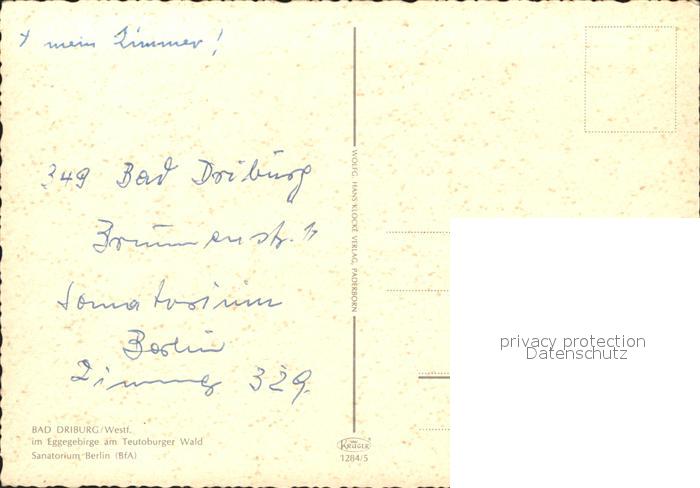 x mein Zimmer!
349 Bad Driburg
Brunnenstr. 11
Sanatorium
Berlin
Zimmer 329.
BAD DRIBURG/Westf.
im Eggegebirge am Teutoburger Wald
Sanatorium Berlin (BfA)
WOLFG. HANS KLOCKE VERLAG, PADERBORN
KRÜGER
1284/5
privacy protection
Datenschutz